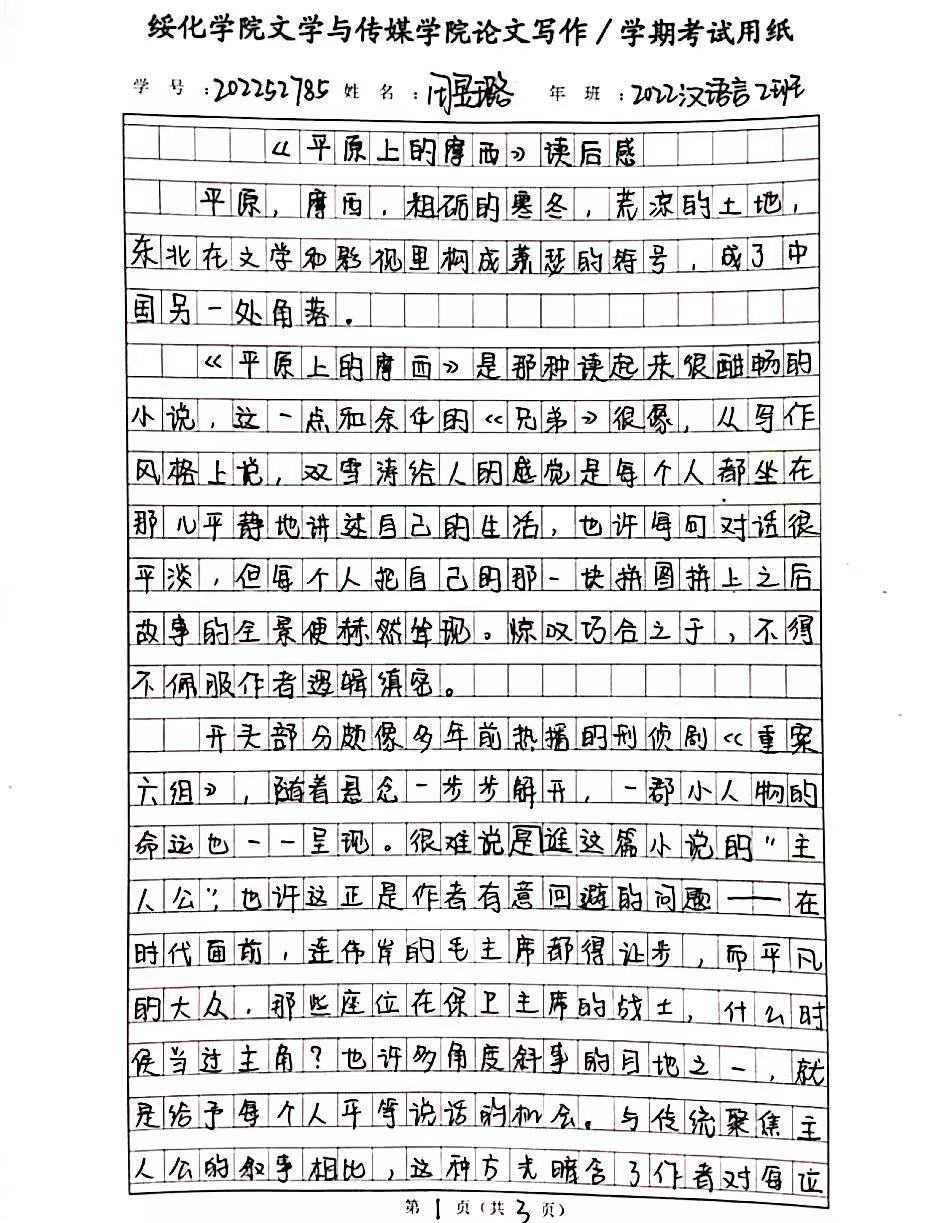 绥化学院文学与传媒学院论文写作/学期考试用纸
学 号：202252785 姓 名：闫昱璐 年 班：2022汉语言2班
《平原上的摩西》读后感
平原，摩西，粗砺的寒冬，荒凉的土地，
东北在文学和影视里构成萧瑟的符号，成了中
国另一处角落。
《平原上的摩西》是那种读起来很酣畅的
小说，这一点和余华的《兄弟》很像，从写作
风格上说，双雪涛给人的感觉是每个人都坐在
那儿平静地讲述自己的生活，也许每句对话很
平淡，但每个人把自己的那一块拼图拼上之后
故事的全景便赫然坐现。惊叹巧合之于，不得
不佩服作者逻辑缜密。
开头部分颇像多年前热播的刑侦剧《重案
六组》，随着悬念一步步解开，一群小人物的
命运也一一呈现。很难说是谁这篇小说的“主
人公”，也许这正是作者有意回避的问题——在
时代面前，连伟岸的毛主席都得让步，而平凡
的大众，那些座位在保卫主席的战士，什么时
侯当过主角？也许多角度斜事的目地之一，就
是给予每个人平等说话的机会。与传统聚焦主
人公的叙事相比，这种方式暗含了作者对每位
第 1 页（共 3 页）